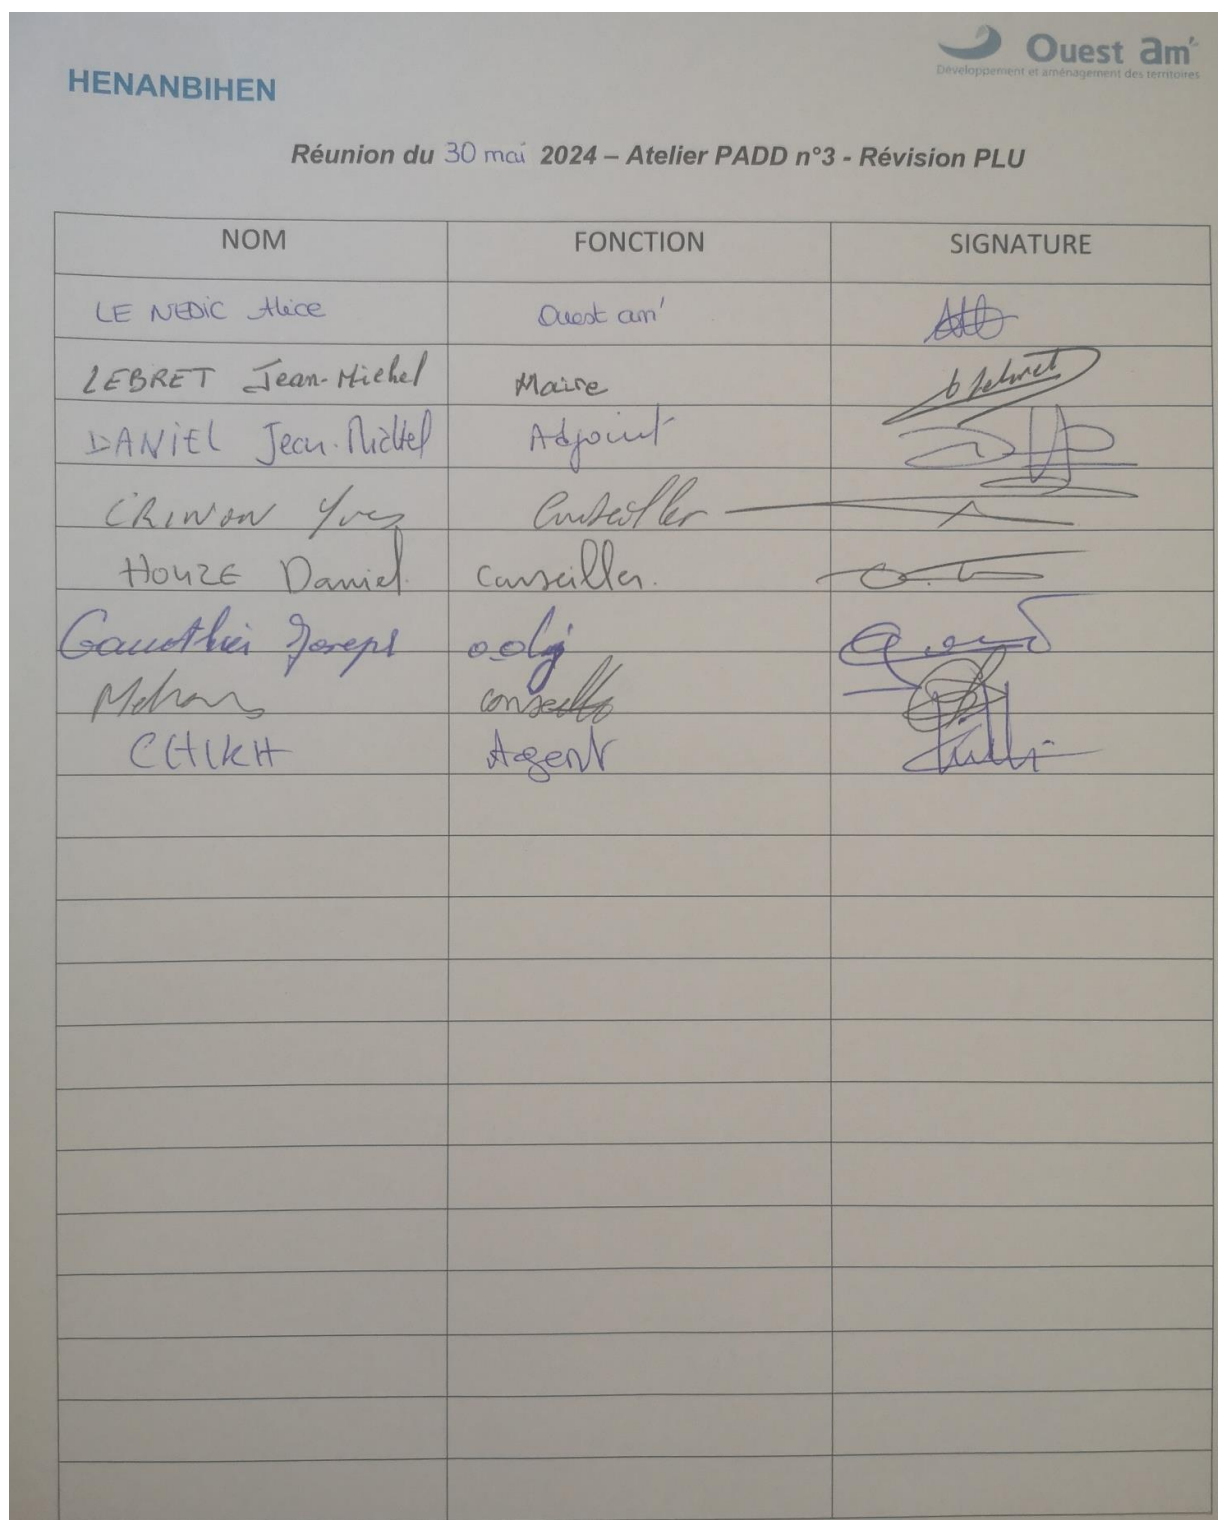 Ouest am'
Développement et aménagement des territoires
HENANBIHEN
Réunion du 30 mai 2024 – Atelier PADD n°3 - Révision PLU
NOM FONCTION SIGNATURE
LE NEDIC Alice Ouest am'
LEBRET Jean-Michel Maire
DANIEL Jean-Michel Adjoint
CRINON Yves Conseiller
HOUZE Daniel. Conseiller.
Gauthier Joseph adj
conseiller
CHIKH Agent